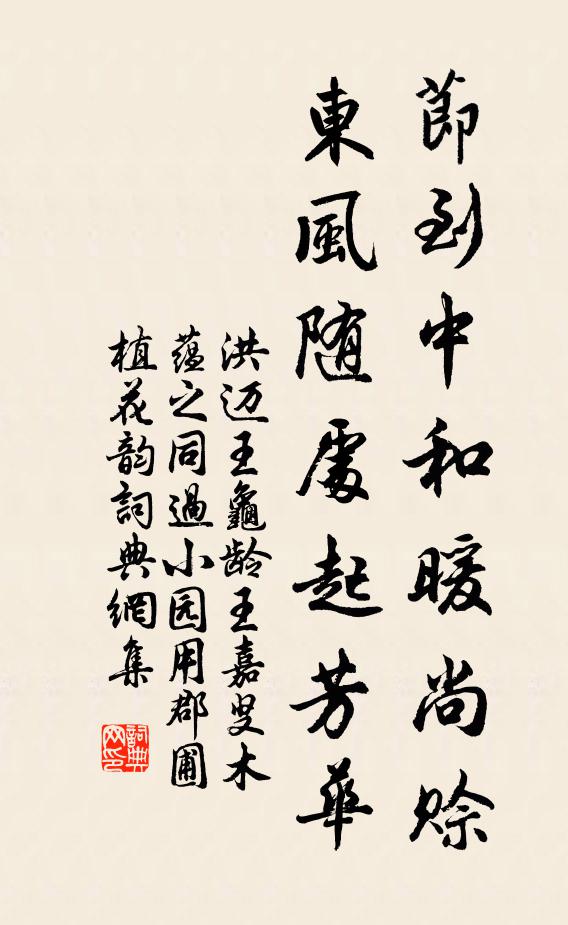 節到中和暖尚賒
東風随處起芳華
洪迈王龜龄王嘉叟木
蕴之同過小园用郡圃
植花韵詞典網集
詞典网印